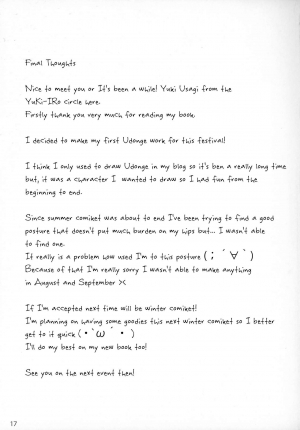 Final Thoughts
Nice to meet you or It's been a while! Yuki Usagi from the
YuKi-IRo circle here.
Firstly thank you very much for reading my book.
I decided to make my first Udonge work for this festival!
I think I only used to draw Udonge in my blog so it's ben a really long time
but, it was a character I wanted to draw so I had fun from the
beginning to end.
Since summer comiket was about to end I've been trying to find a good
posture that doesn't put much burden on my hips but... I wasn't able
to find one.
It really is a problem how used I'm to this posture (；´∀｀)
Because of that I'm really sorry I wasn't able to make anything
in August and September ><
If I'm accepted next time will be winter comiket!
I'm planning on having some goodies this next winter comiket so I better
get to it quick (・｀ω´・)
I'll do my best on my new book too!
See you on the next event then!
17